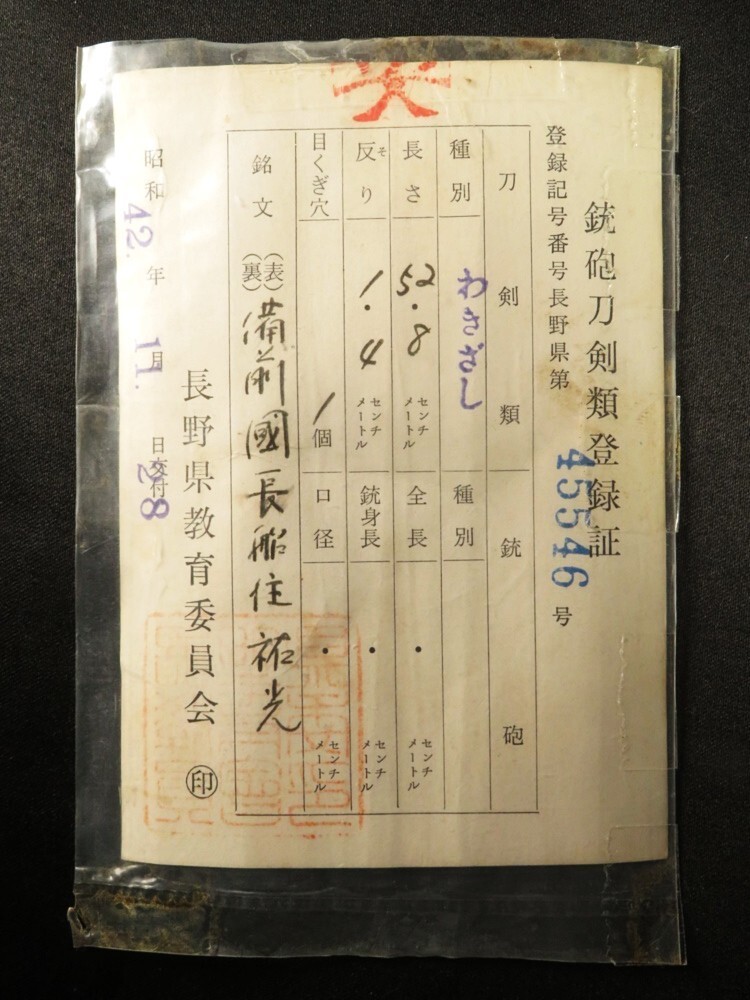 銃砲刀剣類登録証
登録記号番号長野県第 45546 号
刀剣類 銃砲
種別 わきざし 種別
長さ 52.8 センチメートル 全長 ・ センチメートル
反り そ 1.4 センチメートル 銃身長 ・ センチメートル
目くぎ穴 1個 口径 ・ センチメートル
銘文 (表) 備前國長船住祐光
(裏)
長野県教育委員会 ㊞
昭和42.年11.月28日交付